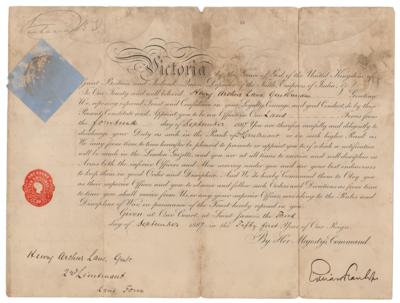 Victoria by the Grace of God of the United Kingdom of
Great Britain and Ireland, Queen, Defender of the Faith, Empress of India, &c
To Our Trusty and well beloved Henry Arthur Lane, Gentleman Greeting
We, reposing especial Trust and Confidence in your Loyalty, Courage, and good Conduct, do by these
Presents Constitute and Appoint you to be an Officer in Our Land Forces from
the fourteenth day of September 1887. You are therefore carefully and diligently to
discharge your Duty as such in the Rank of Lieutenant or in such higher Rank as
We may from time to time hereafter be pleased to promote or appoint you to, of which a notification
will be made in the London Gazette, and you are at all times to exercise and well discipline in
Arms both the inferior Officers and Men serving under you and use your best endeavours
to keep them in good Order and Discipline. And We do hereby Command them to Obey you
as their superior Officer and you to observe and follow such Orders and Directions as from time
to time you shall receive from Us, or any your superior Officer, according to the Rules and
Discipline of War, in pursuance of the Trust hereby reposed in you.
Given at Our Court, at Saint James's, the Third
day of September 1887 in the Fifty first Year of Our Reign
By Her Majesty's Command
Henry Arthur Lane, Gent
2nd Lieutenant
Land Forces